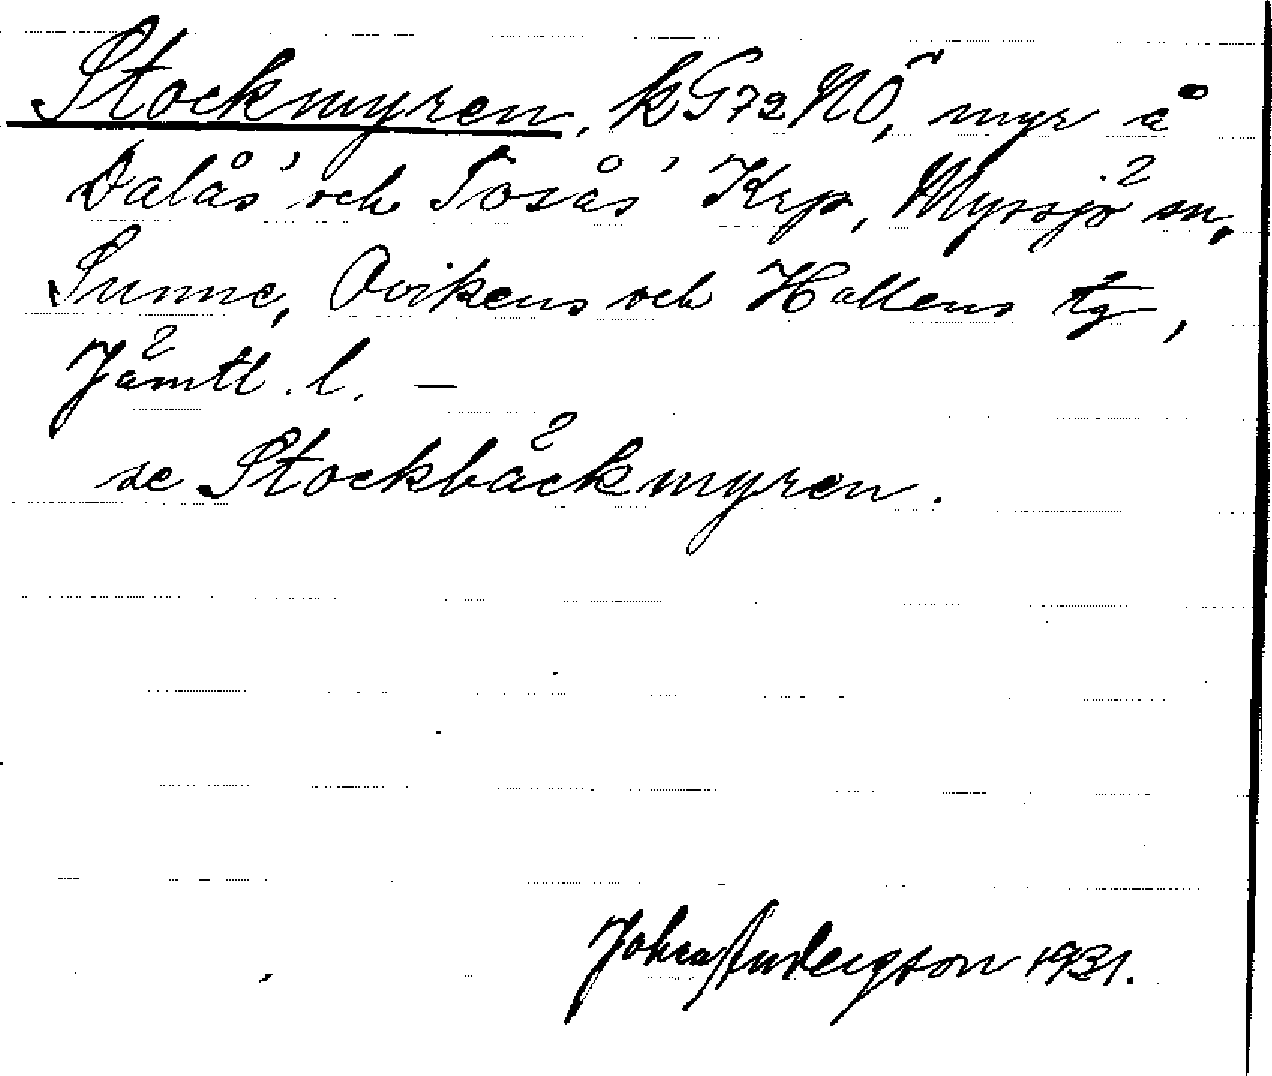 Stockmyren, k G72 NÖ, myr å
Dalås' och Tosås' Krp, Myssjö sn,
Sunne, Ovikens och Hallens tg,
Jämtl. l. —
se Stockbäckmyren.
Johan Anderszon 1931.